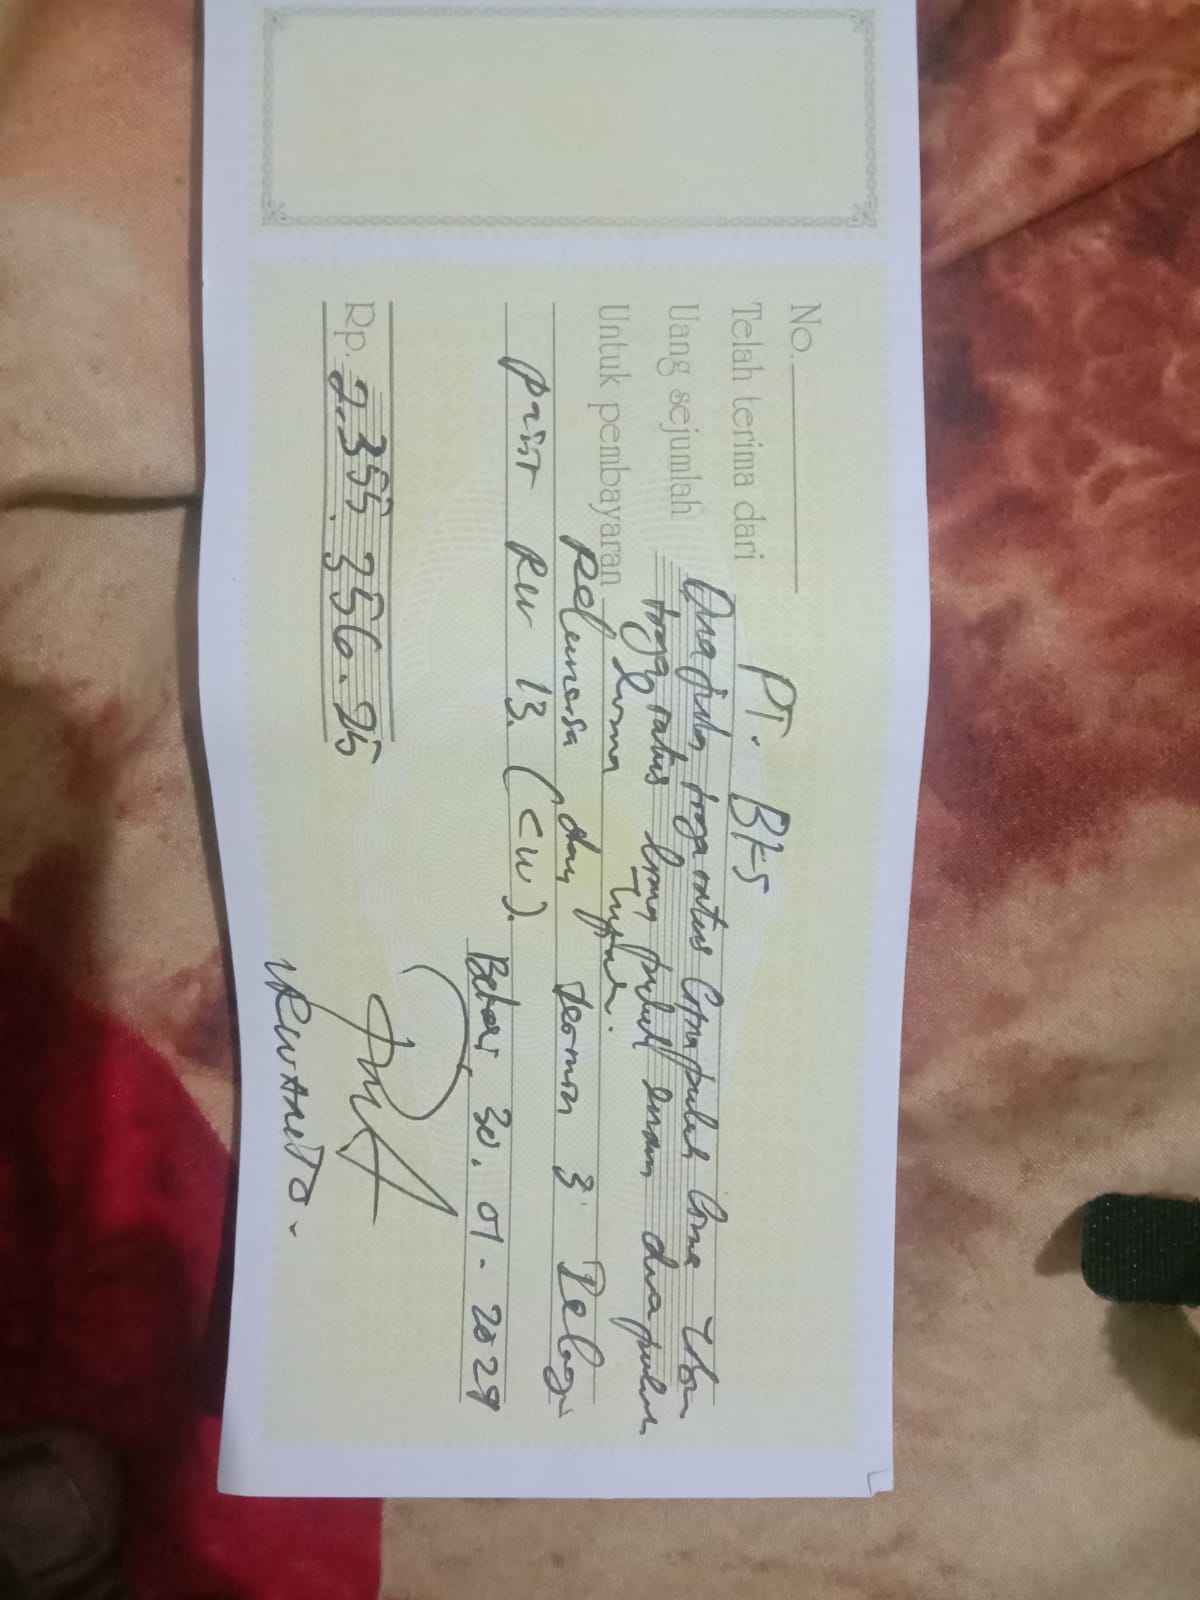 No.
Telah terima dari PT. BKS
Uang sejumlah Dua juta, tiga ratus lima puluh lima ribu
tiga ratus lima puluh enam dua puluh
lima
Untuk pembayaran Pelunasan dan termin 3 Pelangi
paint RW 13. (CW).
Bekasi, 30. 01 - 2024
Rp. 2.355.356.25